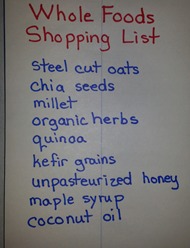 Whole Foods
Shopping List
steel cut oats
chia seeds
millet
organic herbs
quinoa
kefir grains
unpasteurized honey
maple syrup
coconut oil